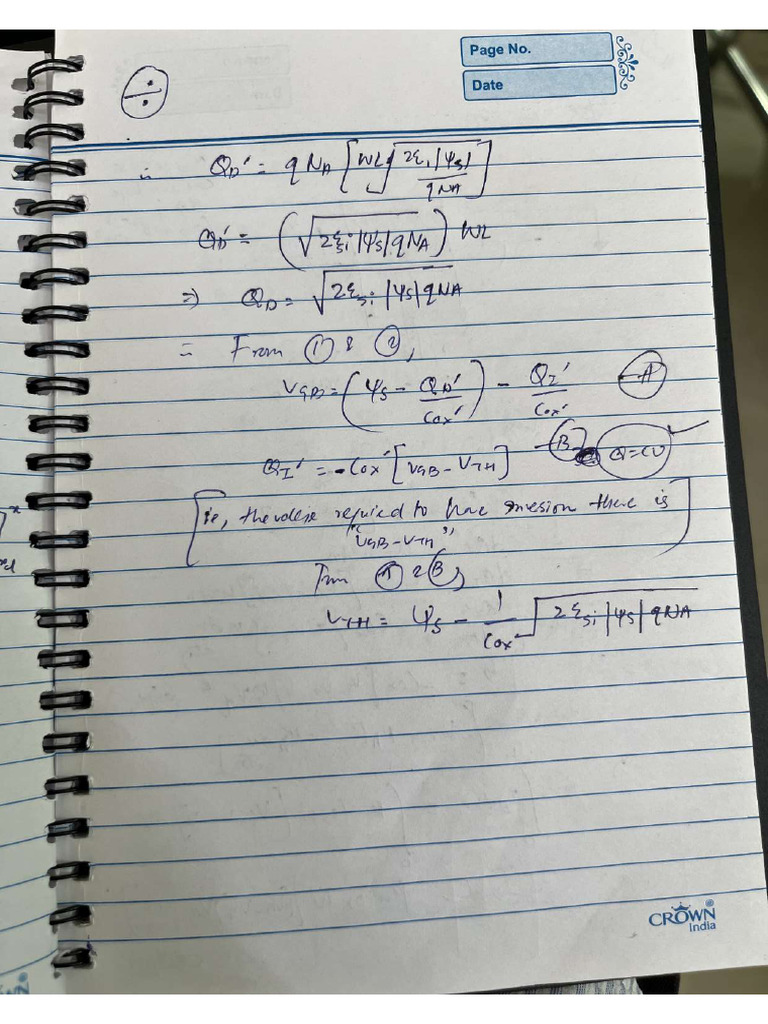 Page No.
Date
÷
∴ QD' = qNA [WL√(2εsi|ψs| / qNA)]
QD' = (√(2εsi|ψs|qNA)) WL
⇒ QD = √(2εsi|ψs|qNA)
= From ① & ②,
VGB = (ψs - QD'/Cox') - QI'/Cox' — Ⓐ
QI' = -Cox' [VGB - VTH] — Ⓑ Q=CV ✓
[ie, the required to have invesion there is
"VGB - VTH"]
From Ⓐ & Ⓑ,
VTH = ψs - 1/Cox' √(2εsi|ψs|qNA)
CROWN
India